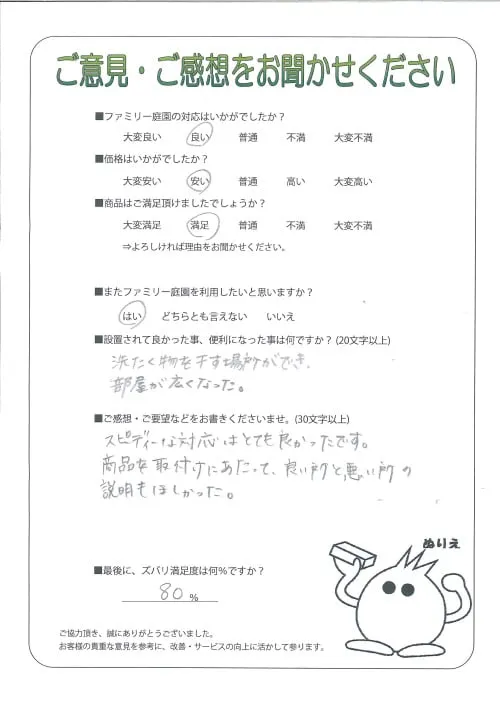 ご意見・ご感想をお聞かせください
■ファミリー庭園の対応はいかがでしたか？
大変良い 良い 普通 不満 大変不満
■価格はいかがでしたか？
大変安い 安い 普通 高い 大変高い
■商品はご満足頂けましたでしょうか？
大変満足 満足 普通 不満 大変不満
⇒よろしければ理由をお聞かせください。
■またファミリー庭園を利用したいと思いますか？
はい どちらとも言えない いいえ
■設置されて良かった事、便利になった事は何ですか？(20文字以上)
洗たく物を干す場所ができ、
部屋が広くなった。
■ご感想・ご要望などをお書きくださいませ。(30文字以上)
スピディーな対応はとても良かったです。
商品を取付けにあたって、良い所と悪い所の
説明もほしかった。
ぬりえ
■最後に、ズバリ満足度は何％ですか？
80 %
ご協力頂き、誠にありがとうございました。
お客様の貴重な意見を参考に、改善・サービスの向上に活かして参ります。